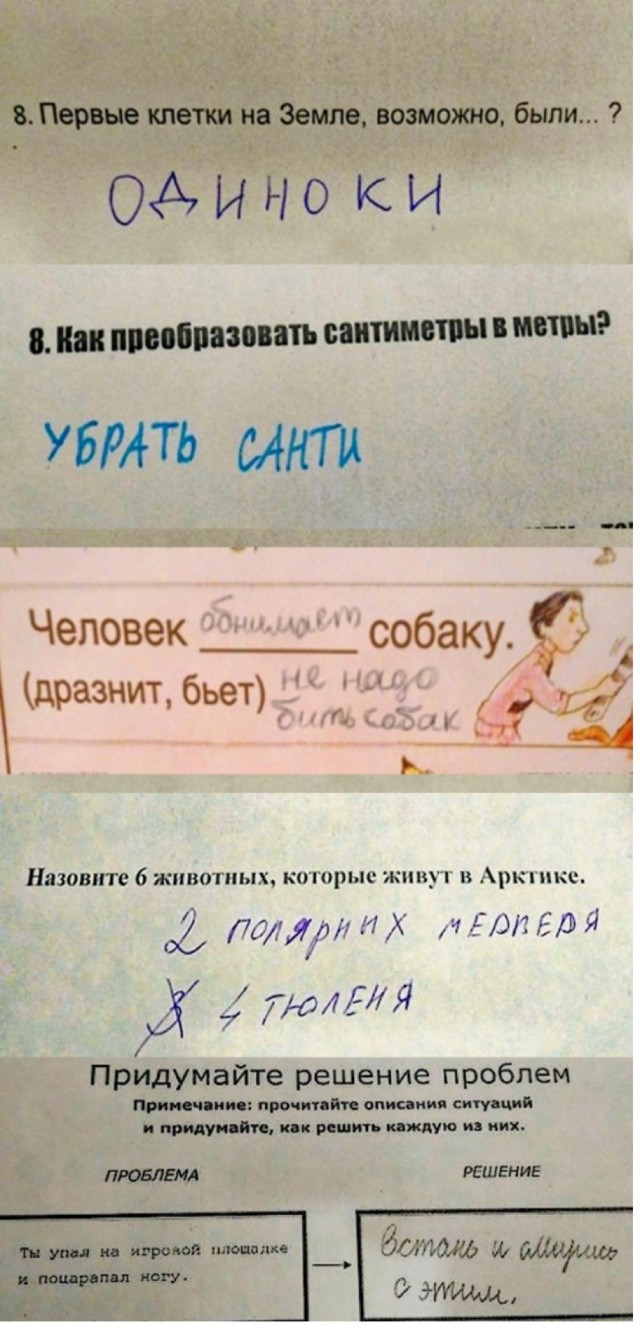 8. Первые клетки на Земле, возможно, были... ?
ОДИНОКИ
8. Как преобразовать сантиметры в метры?
УБРАТЬ САНТИ
Человек обнимает собаку.
(дразнит, бьет) не надо
бить собак
Назовите 6 животных, которые живут в Арктике.
2 ПОЛЯРНЫХ МЕДВЕДЯ
4 ТЮЛЕНЯ
Придумайте решение проблем
Примечание: прочитайте описания ситуаций
и придумайте, как решить каждую из них.
ПРОБЛЕМА РЕШЕНИЕ
Ты упал на игровой площадке
и поцарапал ногу.
Встань и смирись
с этим.